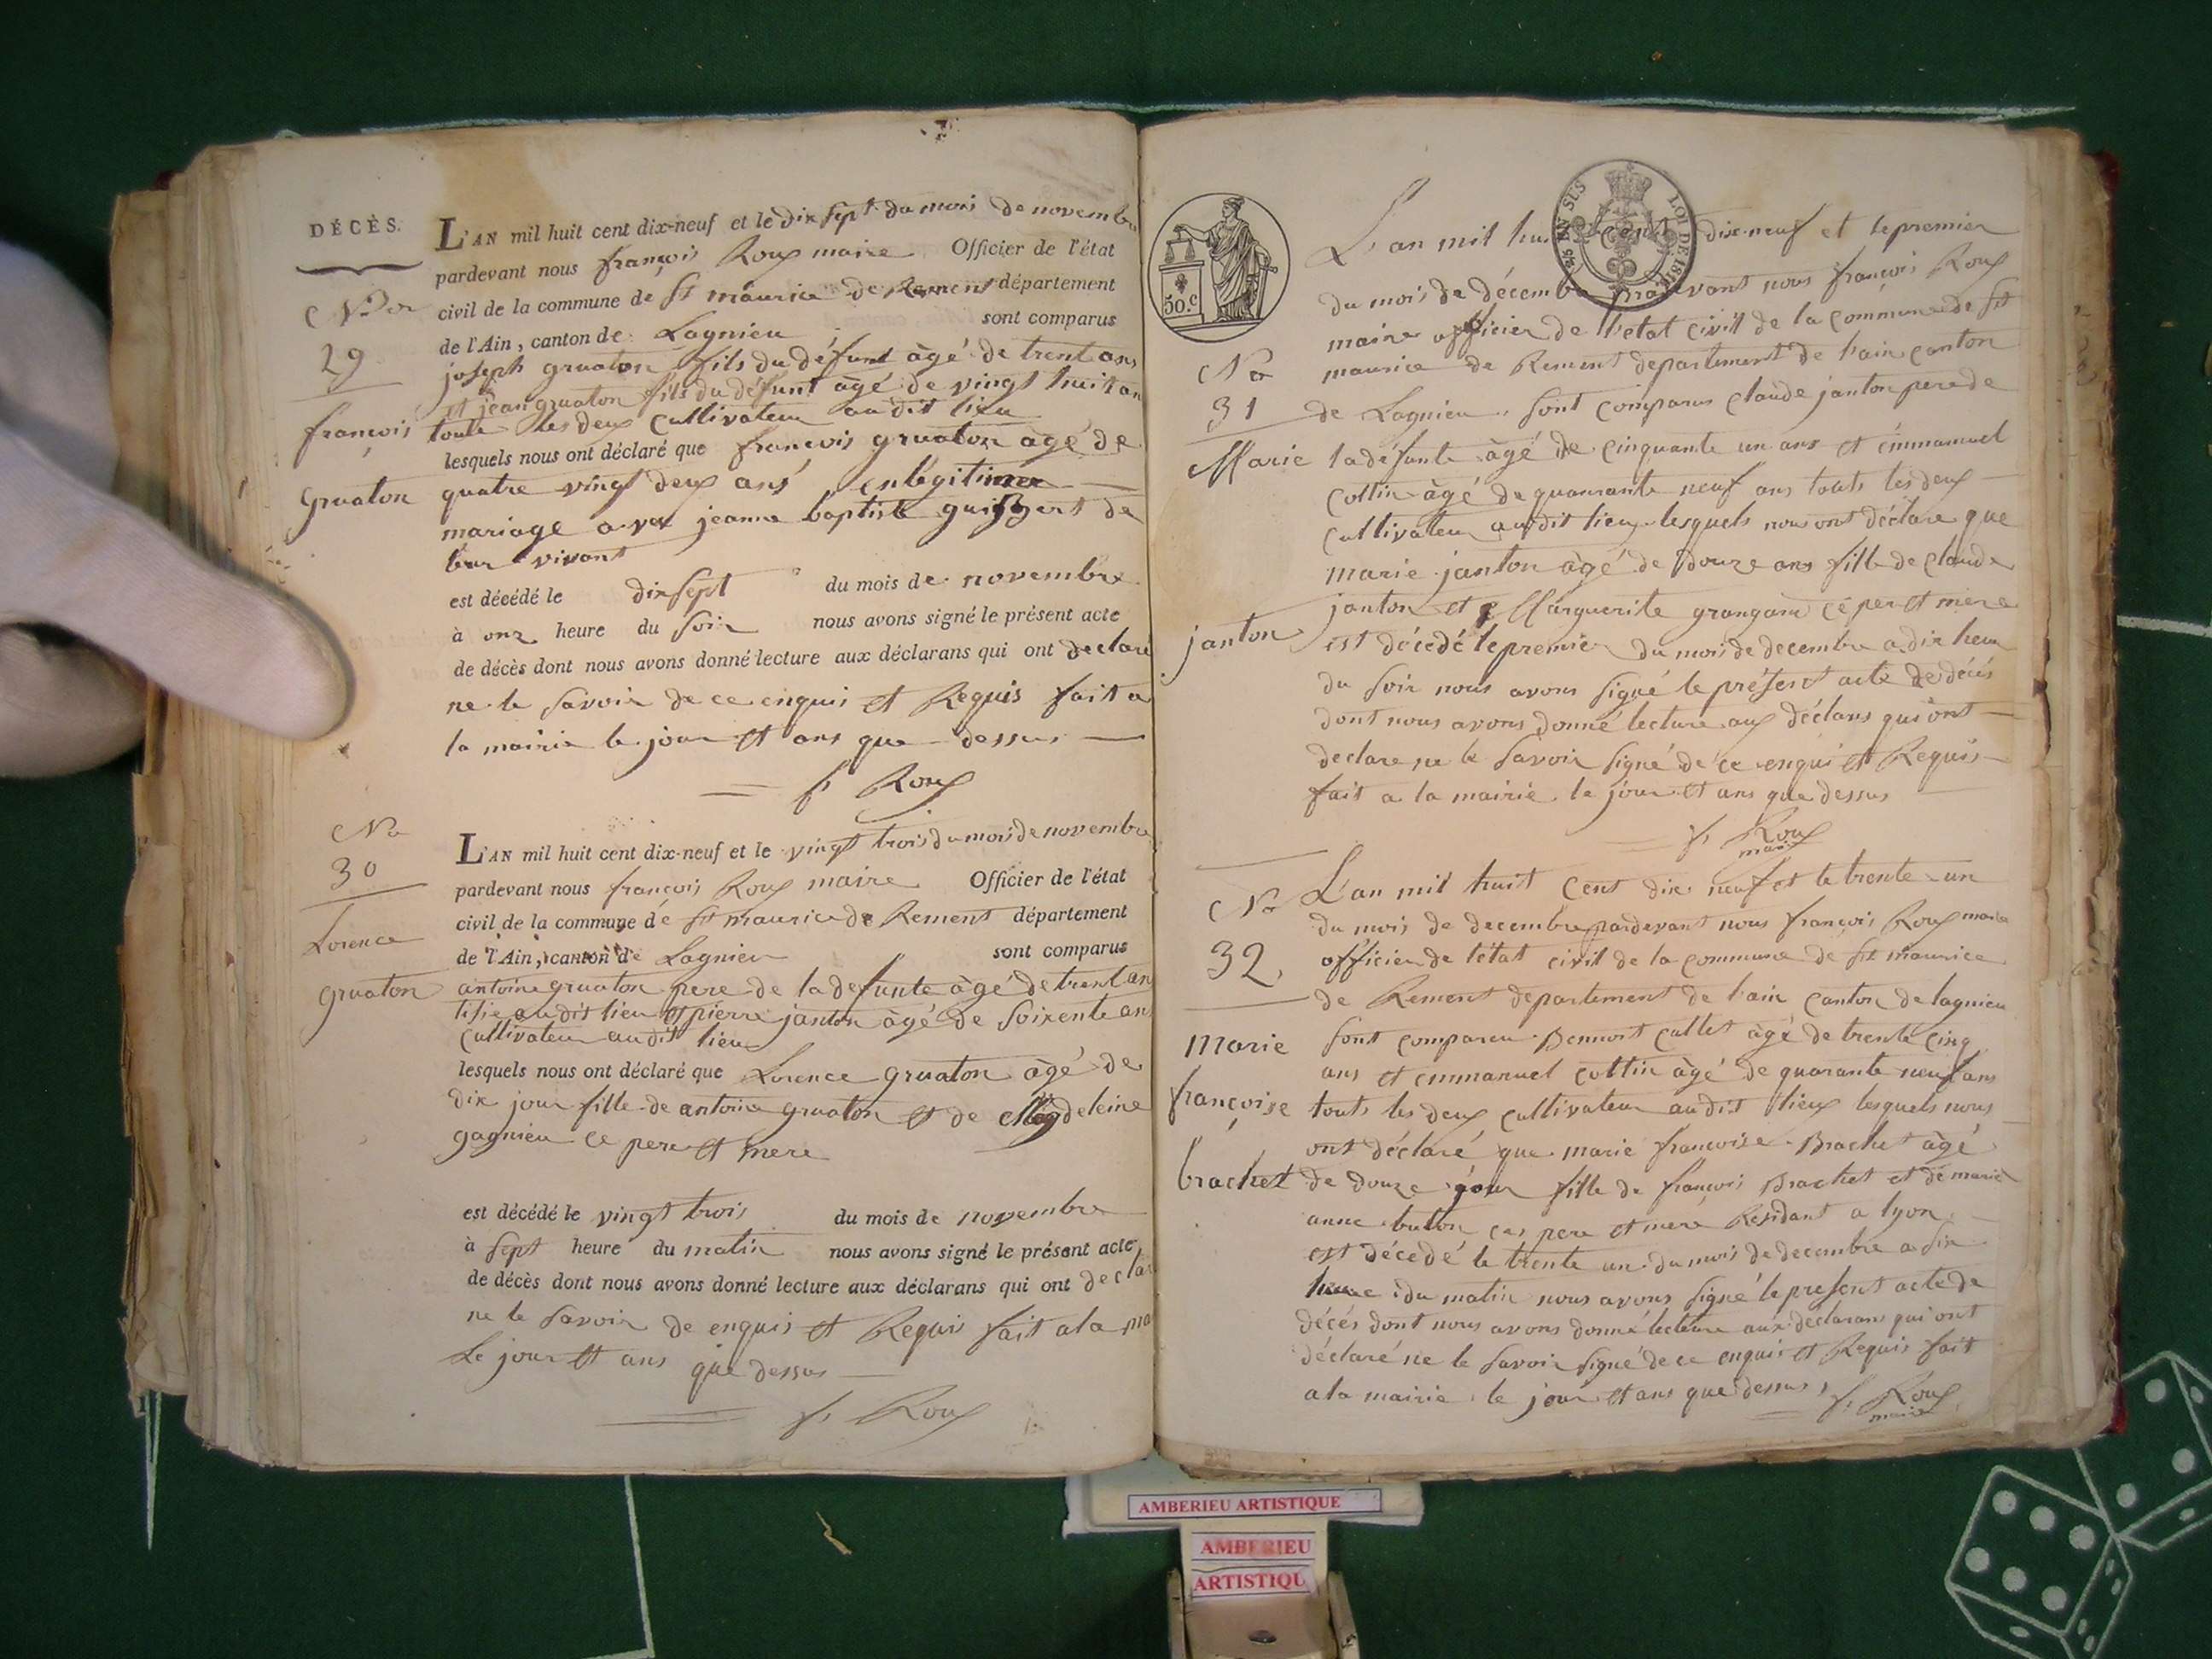 DÉCÈS.
No
29
françois
gruaton
L'AN mil huit cent dix-neuf et le dix sept du mois de novembre
pardevant nous françois Roux maire Officier de l'état
civil de la commune de St maurice de Rement département
de l'Ain, canton de Lagnieu sont comparus
joseph gruaton fils du défunt àgé de trent ans
et jean gruaton fils du défunt àgé de vingt huit an
toute les deux cultivateur audit lieu
lesquels nous ont déclaré que francois gruaton àgé de
quatre vingt deux ans en légitime
mariage avec jeanne baptiste de
leur vivant
est décédé le dix sept du mois de novembre
à onz heure du soir nous avons signé le présent acte
de décès dont nous avons donné lecture aux déclarans qui ont declaré
ne le savoir de ce enquis et Requis fait a
la mairie le jour et ans que dessus
f. Roux
No
30
Lorence
gruaton
L'AN mil huit cent dix-neuf et le vingt trois du mois de novembre
pardevant nous françois Roux maire Officier de l'état
civil de la commune de St maurice de Rement département
de l'Ain, canton de Lagnieu sont comparus
antoine gruaton pere de la defunte àgé de trent an
audit lieu et pierre janton àgé de soixente an
cultivateur audit lieu
lesquels nous ont déclaré que Lorence gruaton àgé de
dix jour fille de antoine gruaton et de Magdeleine
gagnieu ce pere et mere
est décédé le vingt trois du mois de novembre
à sept heure du matin nous avons signé le présent acte
de décès dont nous avons donné lecture aux déclarans qui ont declar
ne le savoir de enquis et Requis fait a la ma
Le jour et ans que dessus
f. Roux
50.c
EN SUS
LOI DE 1816
No
31
Marie
janton
L'an mil huit cent dix-neuf et le premier
du mois de décembre pardevant nous françois Roux
maire officier de l'etat civil de la commune de St
maurice de Rement departement de l'ain canton
de Lagnieu, sont comparus claude janton pere de
la défunte àgé de cinquante un ans et emmanuel
cottin àgé de quarante neuf ans touts les deux
cultivateur audit lieux lesquels nous ont déclare que
marie janton àgé de douze ans fille de claude
janton et Marguerite grangard ce per et mere
est décédé le premier du mois de decembre a dix heur
du soir nous avons signé le présent acte de décés
dont nous avons donné lecture aux déclans qui ont
declare ne le savoir signé de ce enqui et Requis
fait a la mairie le jour et ans que dessus
f. Roux
maire
No
32
Marie
françoise
brachet
L'an mil huit cent dix neuf et le trente un
du mois de decembre pardevant nous françois Roux maire
officier de l'état civil de la commune de St maurice
de Rement departement de l'ain canton de lagnieu
sont comparu Bennoit cullet àgé de trente cinq
ans et emmanuel cottin àgé de quarante neuf ans
touts les deux cultivateur audit lieux lesquels nous
ont déclaré que marie françoise Brachet àgé
de douze jour fille de françois Brachet et de marie
anne buton ces pere et mere Residant a lyon
est décedé le trente un du mois de decembre a six
heure du matin nous avons signé le present acte de
décés dont nous avons donné lecture aux déclarans qui ont
déclaré ne le savoir signé de ce enquis et Requis fait
a la mairie le jour et ans que dessus f. Roux
maire
AMBERIEU ARTISTIQUE
AMBERIEU
ARTISTIQU